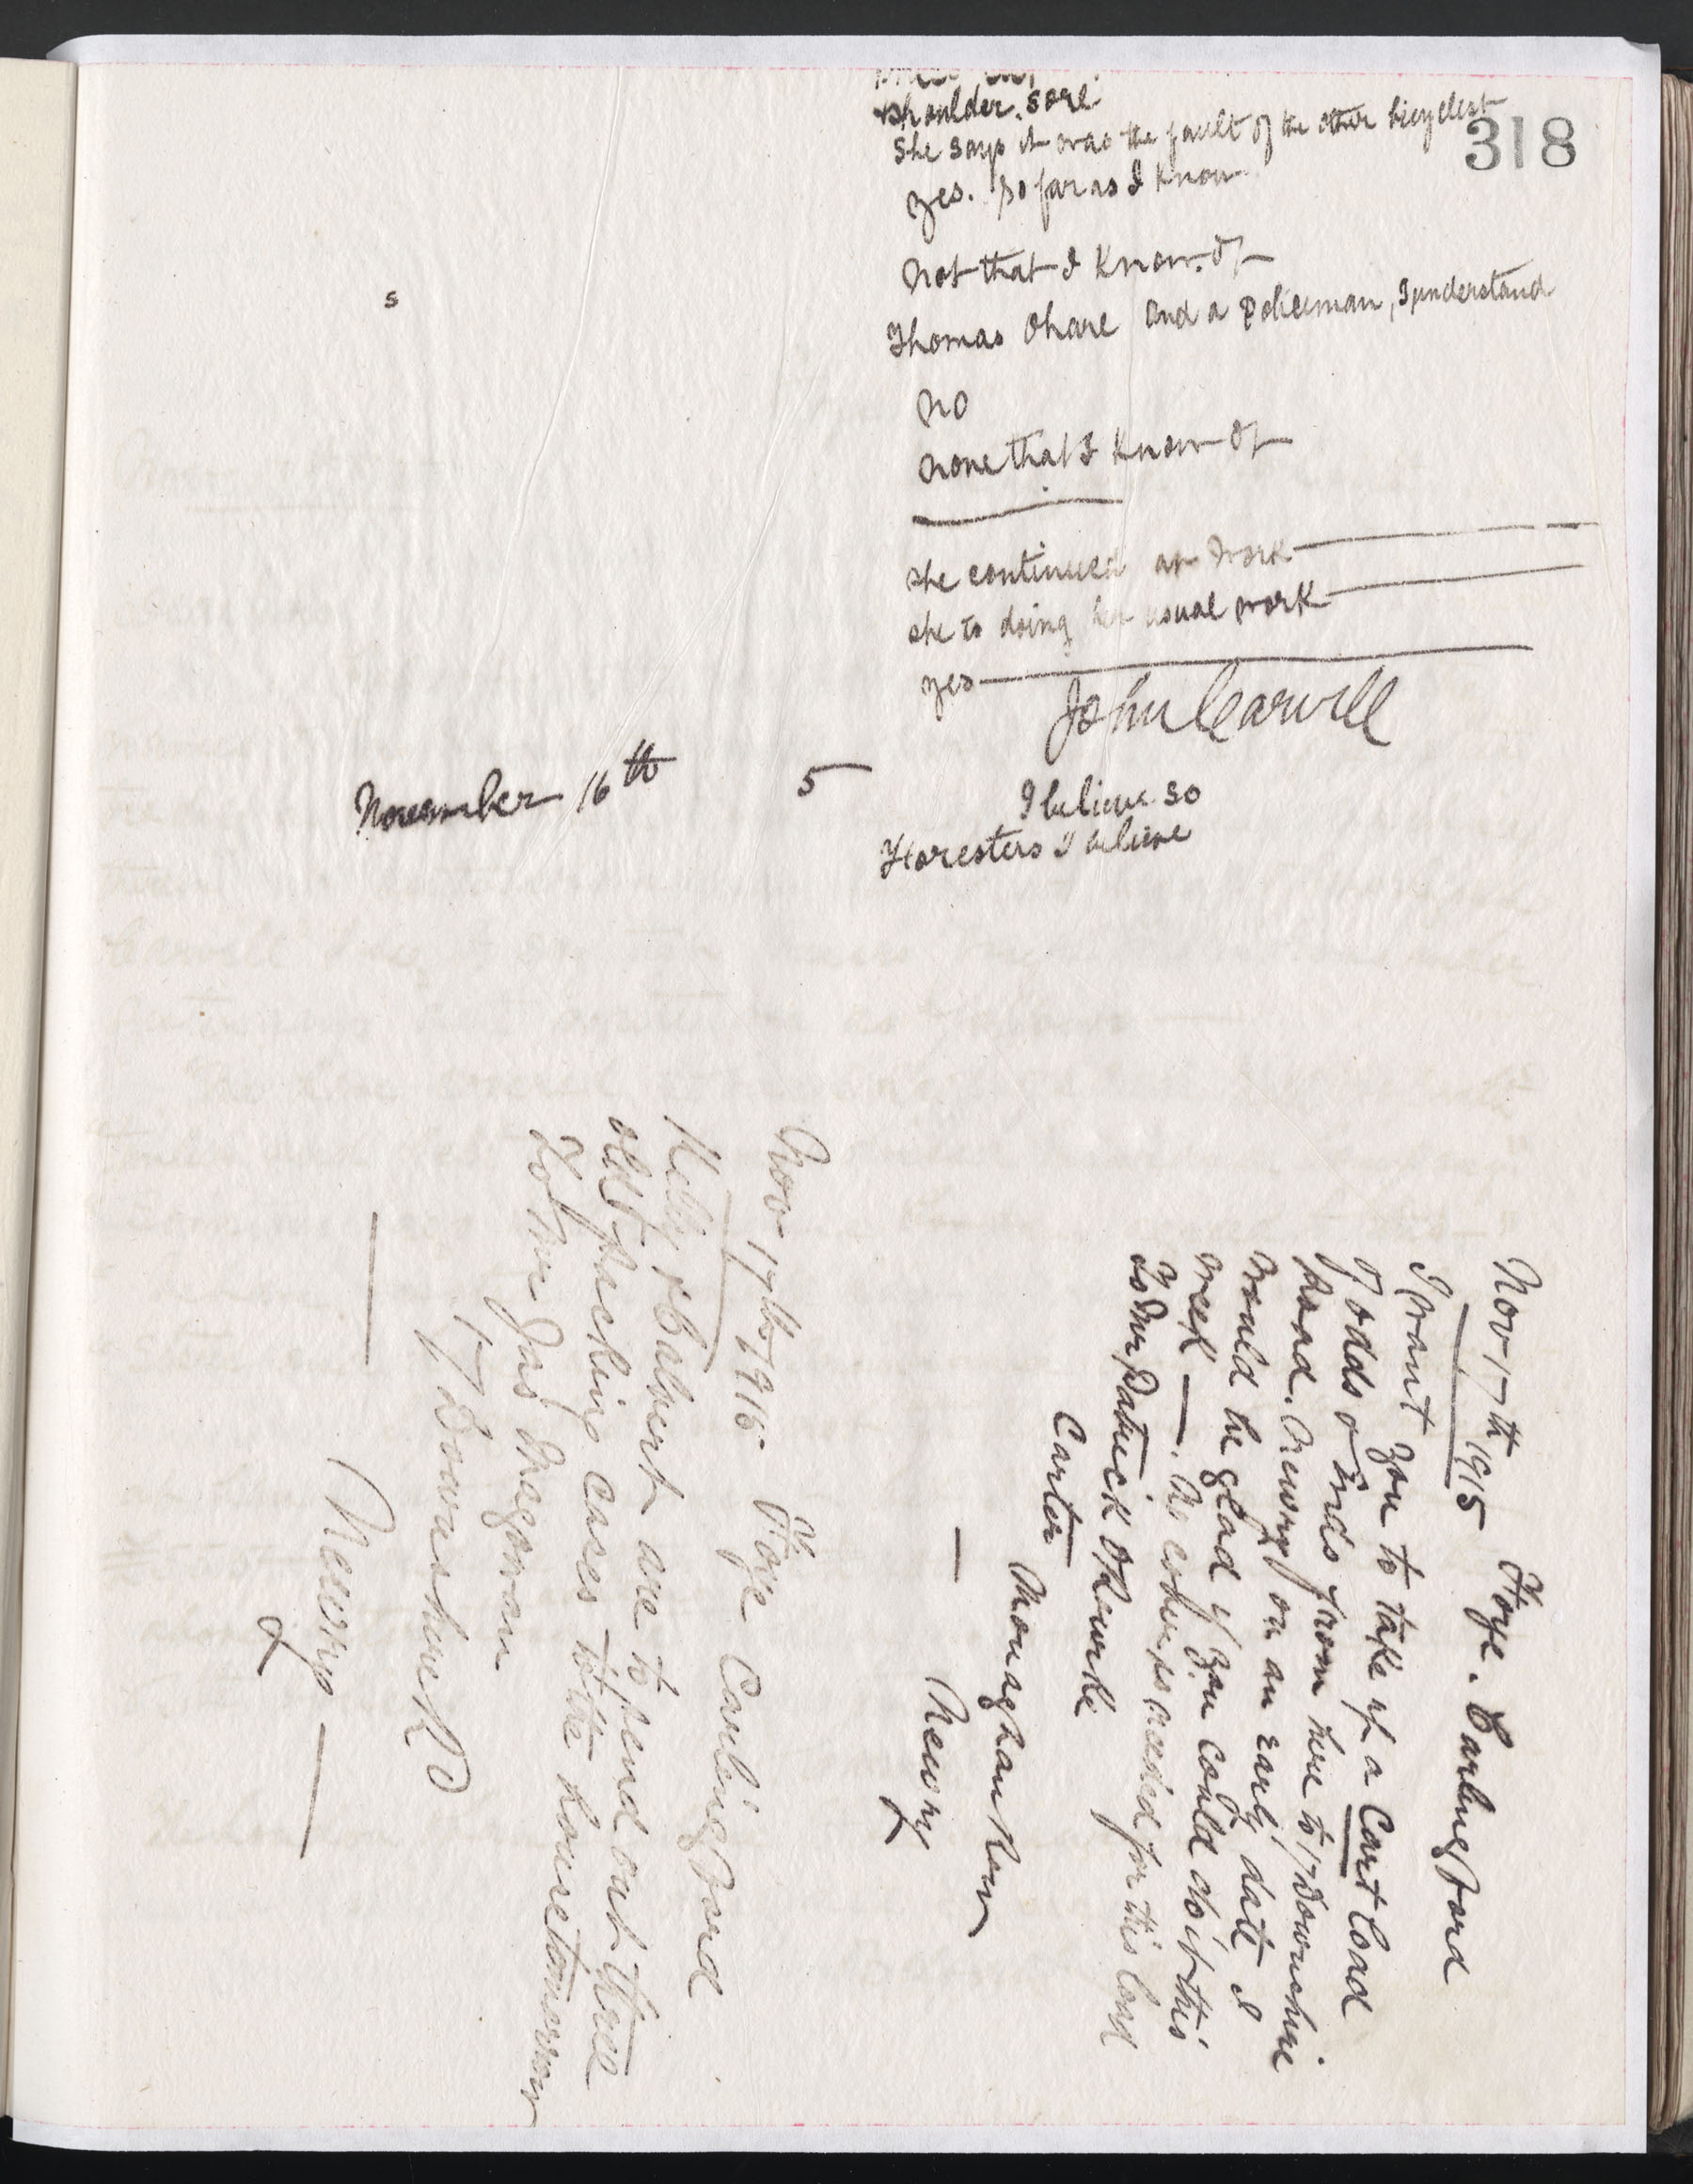 318
shoulder. sore
She says it was the fault of the other bicyclest
yes. so far as I know
not that I know. of
s
Thomas Ohare and a Policeman, I understand
no
none that I know of
she continued at work
she is doing her usual work
yes
John Carvill
November 16th 5
I believe so
Foresters I believe
Nov 17th 1915 Foye. Carlingford
I want you to take up a Cart load
of odds & Ends from here to 17 Downshire
Road. Newry on an early date I
would be glad if you could do it this
week — . No cover is needed for this load
To Mr Patrick ORourke
Carter
Monaghan Row
Newry
Nov 17th 1915 Foye Carlingford
Kelly & Calvert are to send out three
old packing cases to the house tomorrow
To Mr Jas Magowan
17 Downshire Rd
Newry